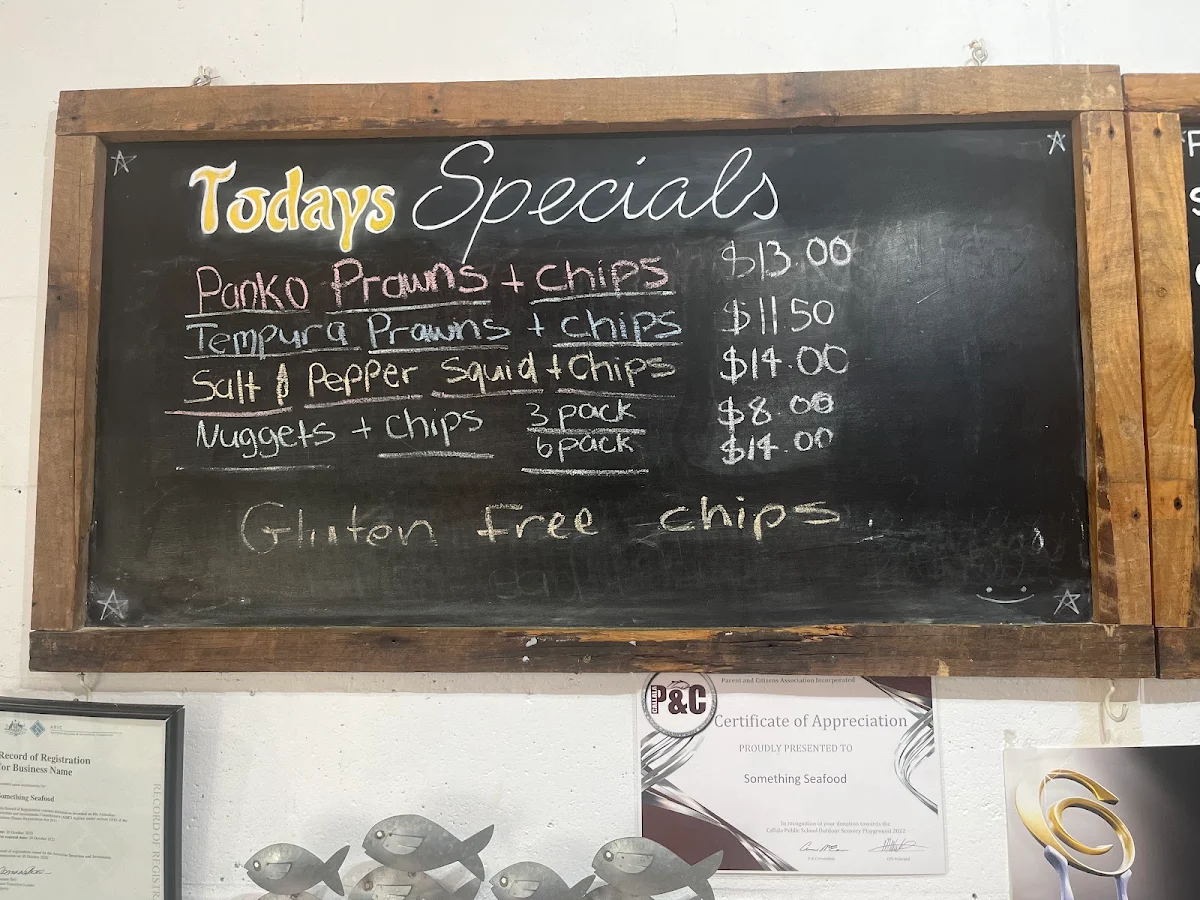 Todays Specials
Panko Prawns + chips $13.00
Tempura Prawns + chips $11 50
Salt & Pepper Squid + Chips $14.00
Nuggets + chips 3 pack $8.00
6 pack $14.00
Gluten free chips
Parent and Citizens Association Incorporated
P&C
Certificate of Appreciation
PROUDLY PRESENTED TO
Something Seafood
In recognition of your donation towards the
Callala Public School Outdoor Sensory Playground 2022
ASIC
Record of Registration
for Business Name
omething Seafood
RECORD OF REGISTR